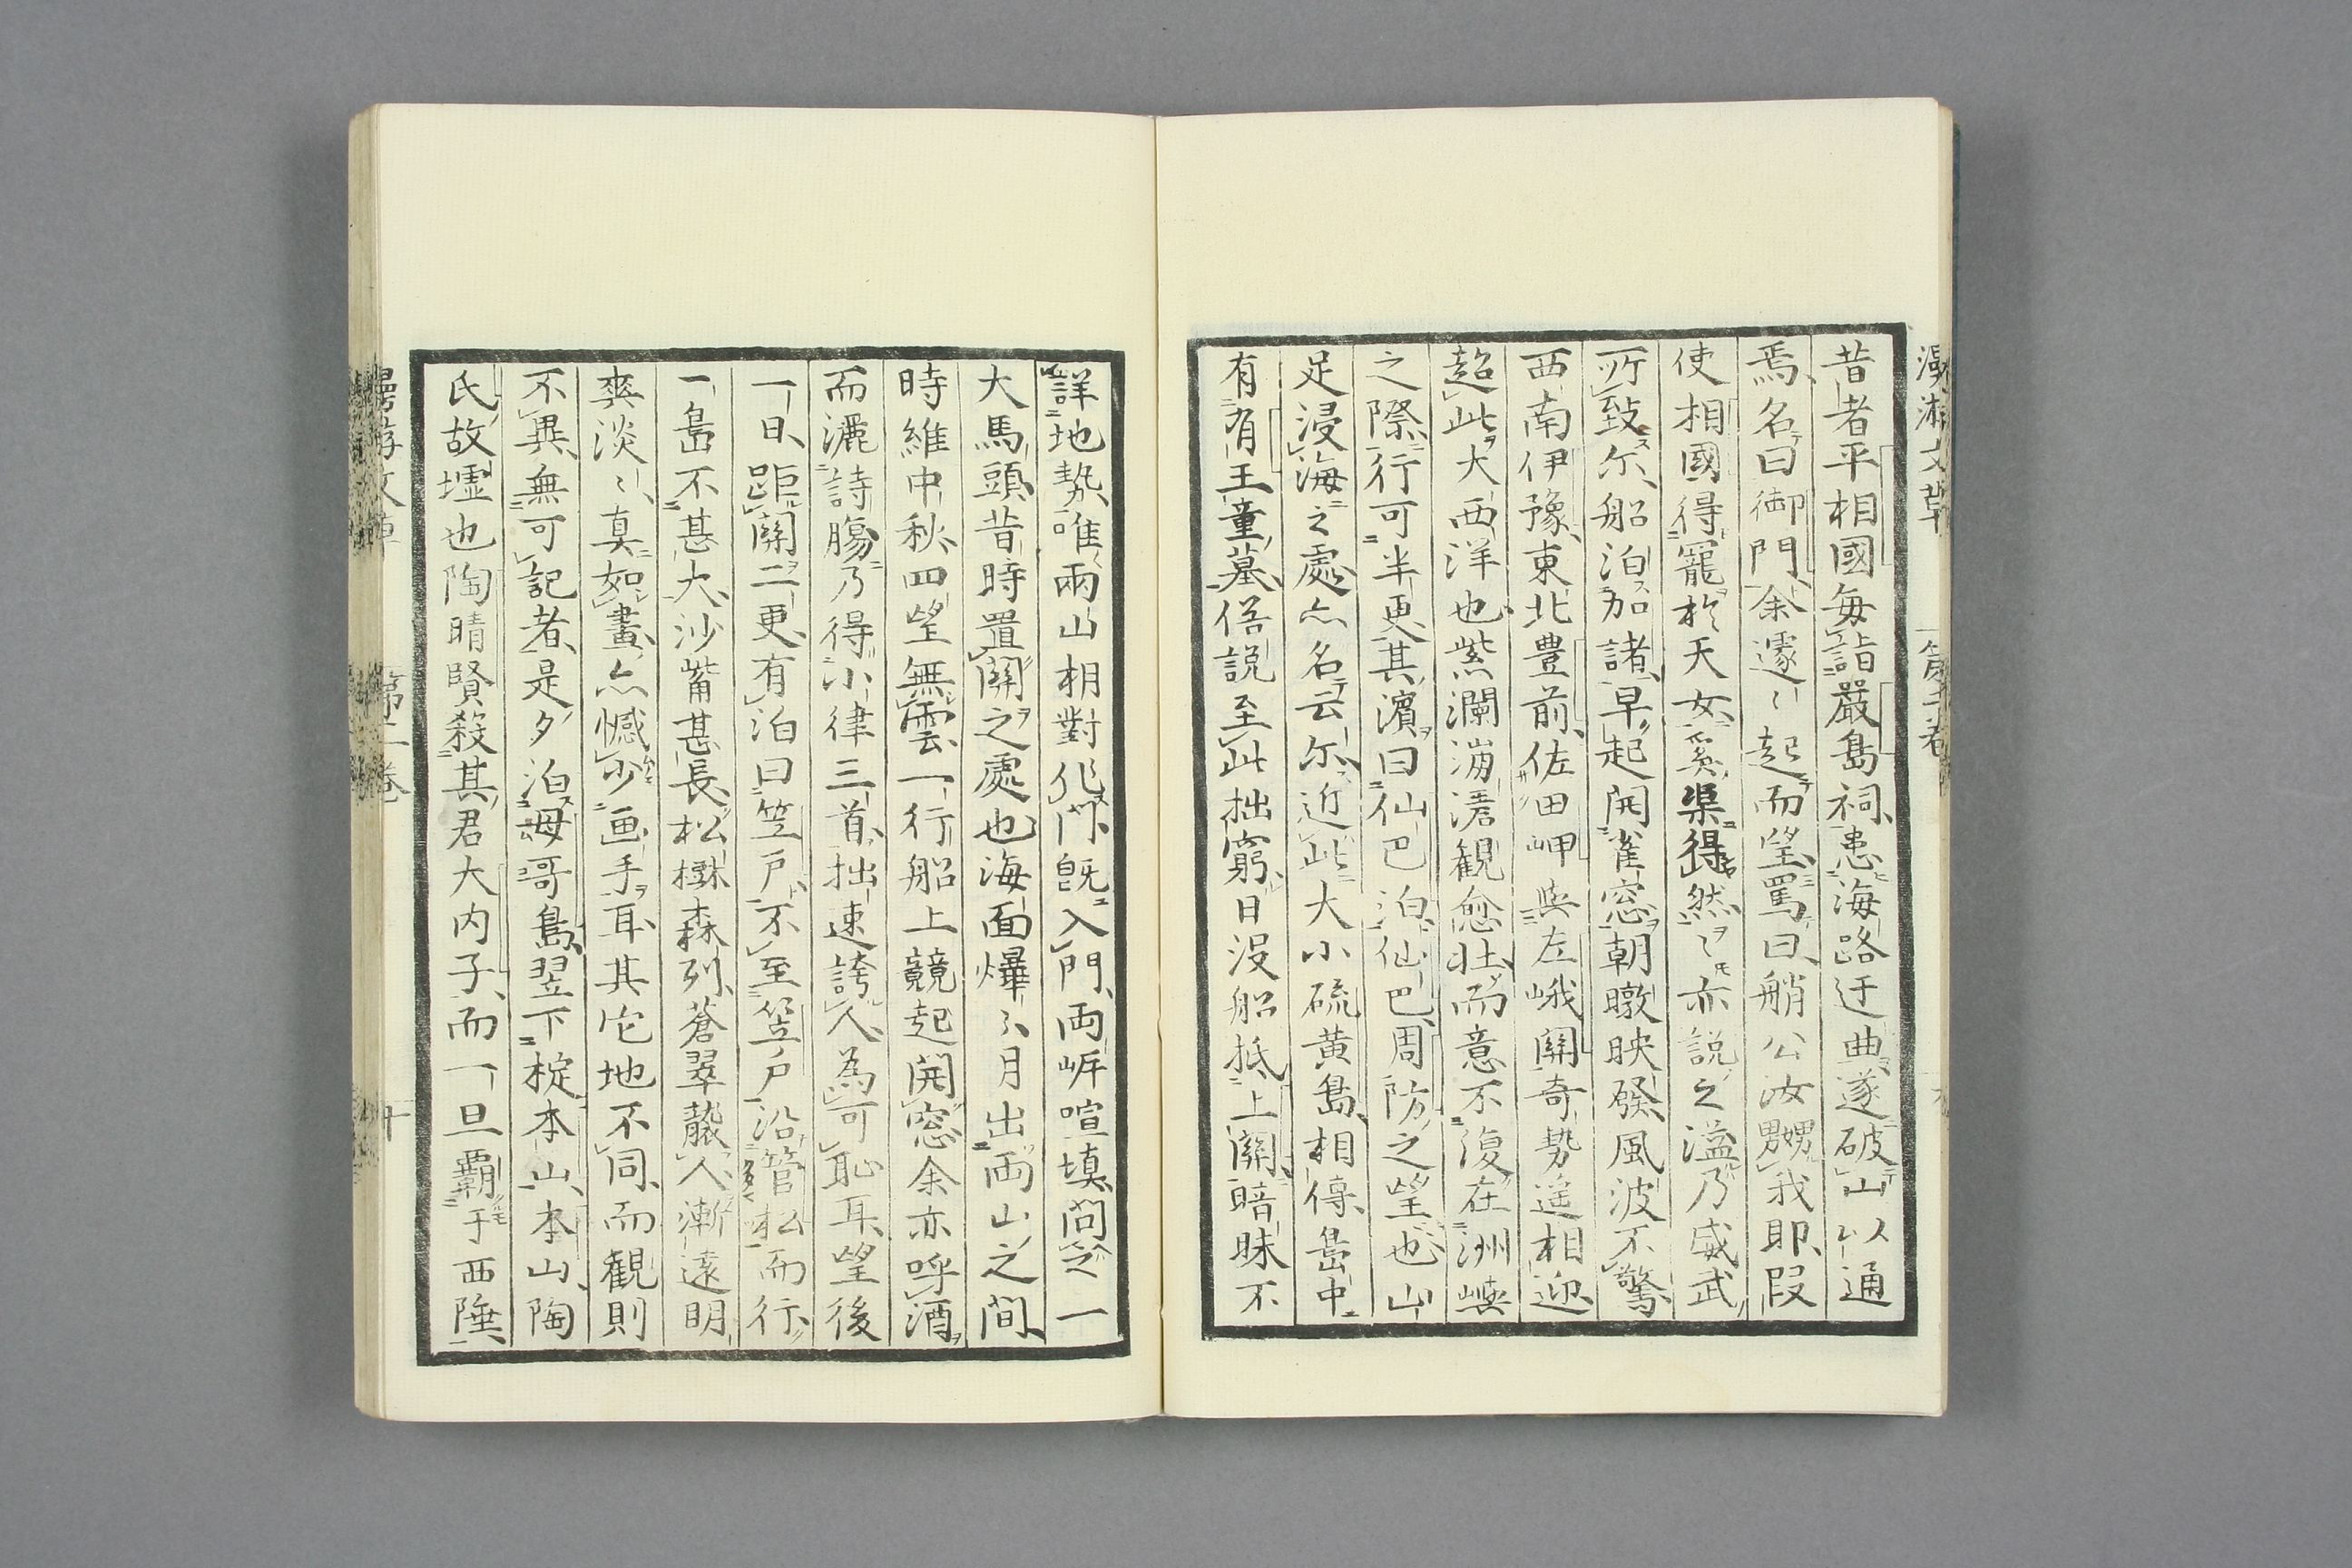 昔者平相國每詣嚴島祠患海路迂曲遂破山以通
焉名曰御門余遽〻起而望罵曰艄公汝嬲我耶叚
使相國得寵於天女奚渠得然〻亦說之溢乃威武
所致尓船泊加諸早起開雀窓朝暾映發風波不驚
西南伊豫東北豊前佐田岬與左峨關奇勢遙相迎
趂此大西洋也紫瀾淜濸観愈壮而意不復在洲嶼
之際行可半更其濱曰仙巴泊仙巴周防之望也山
足浸海之處亦名云尓近此大小硫黃島相傳島中
有有王童墓俗說至此拙窮日没船抵上關暗昧不
詳地勢唯兩山相對化門既入門両岸喧填問之一
大馬頭昔時置關之處也海面爗〻月出両山之間
時維中秋四望無雲一行船上競起開窓余亦呼酒
而灑詩膓乃得小律三首拙速誇人為可恥耳望後
一日距關二更有泊曰笠戶不至笠戶沿管松而行
一島不甚大沙觜甚長松樾森列蒼翠蘸人漸遠明
爽淡〻真如畫亦憾少画手耳其佗地不同而観則
不異無可記者是夕泊毋哥島翌下椗本山本山陶
氏故墟也陶晴賢殺其君大内子而一旦覇于西陲
漫游文草 第二卷
漫游文草 第二卷 十